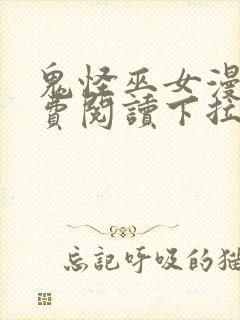 鬼怪巫女漫
費閱讀下拉
忘記呼吸的猫